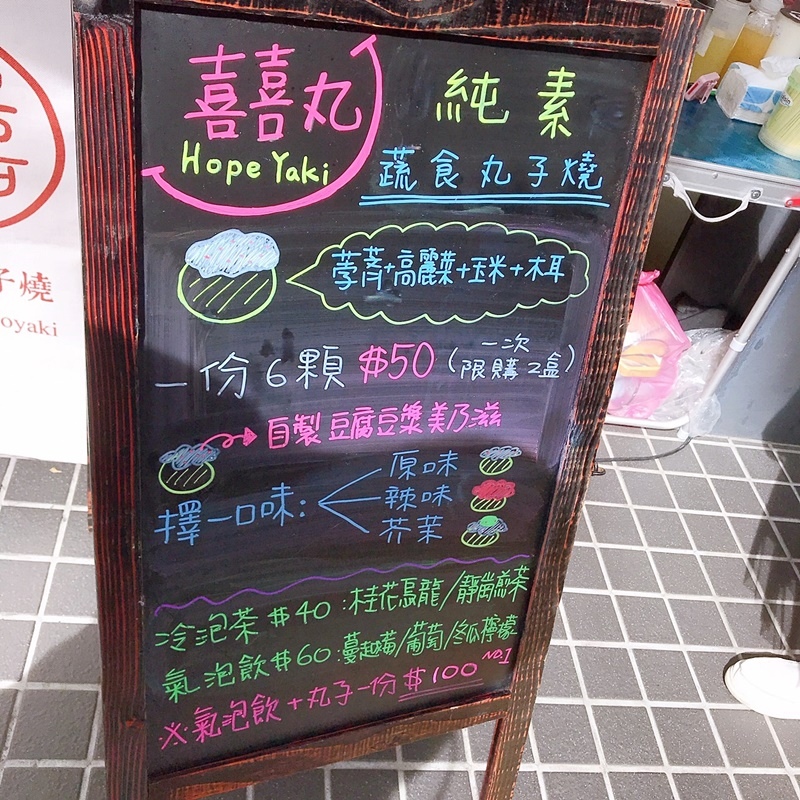 囍丸
Hope Yaki
純素
蔬食丸子燒
蒡蒡+高麗菜+玉米+木耳
一份6顆 $50 (一次限購2盒)
自製豆腐豆漿美乃滋
擇一口味:
原味
辣味
芥茉
冷泡茶 $40:桂花烏龍/靜崗煎茶
氣泡飲 $60:蔓越莓/葡萄/冬瓜檸檬
NO.1
※氣泡飲+丸子一份 $100
子燒
oyaki